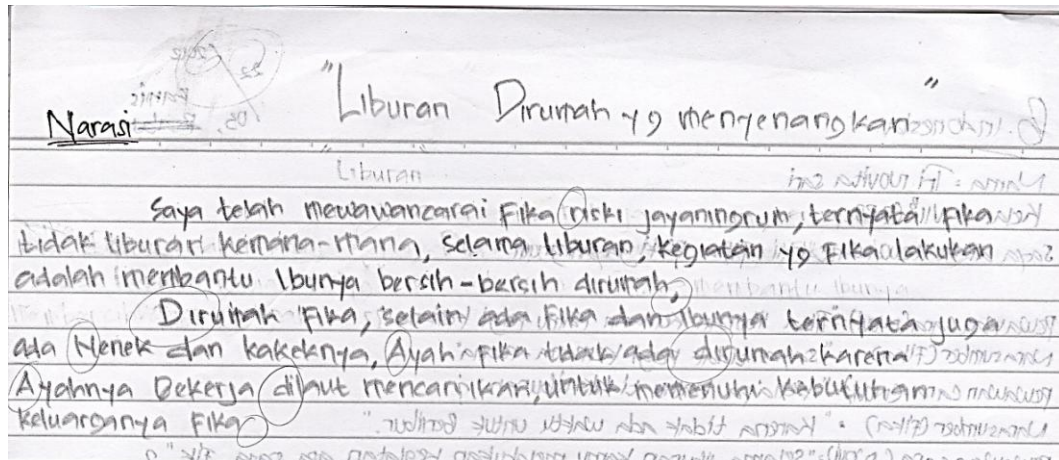 "Liburan Dirumah yg menyenangkan"
Narasi
Liburan
Saya telah mewawancarai Fika riski jayaningrum, ternyata Fika
tidak liburan kemana-mana, selama liburan, kegiatan yg Fika lakukan
adalah membantu Ibunya bersih-bersih dirumah,
Dirumah Fika, selain ada Fika dan Ibunya ternyata juga
ada Nenek dan kakeknya, Ayah Fika tidak ada dirumah karena
Ayahnya Bekerja dilaut mencari ikan, untuk memenuhi kebutuhan
keluarganya Fika